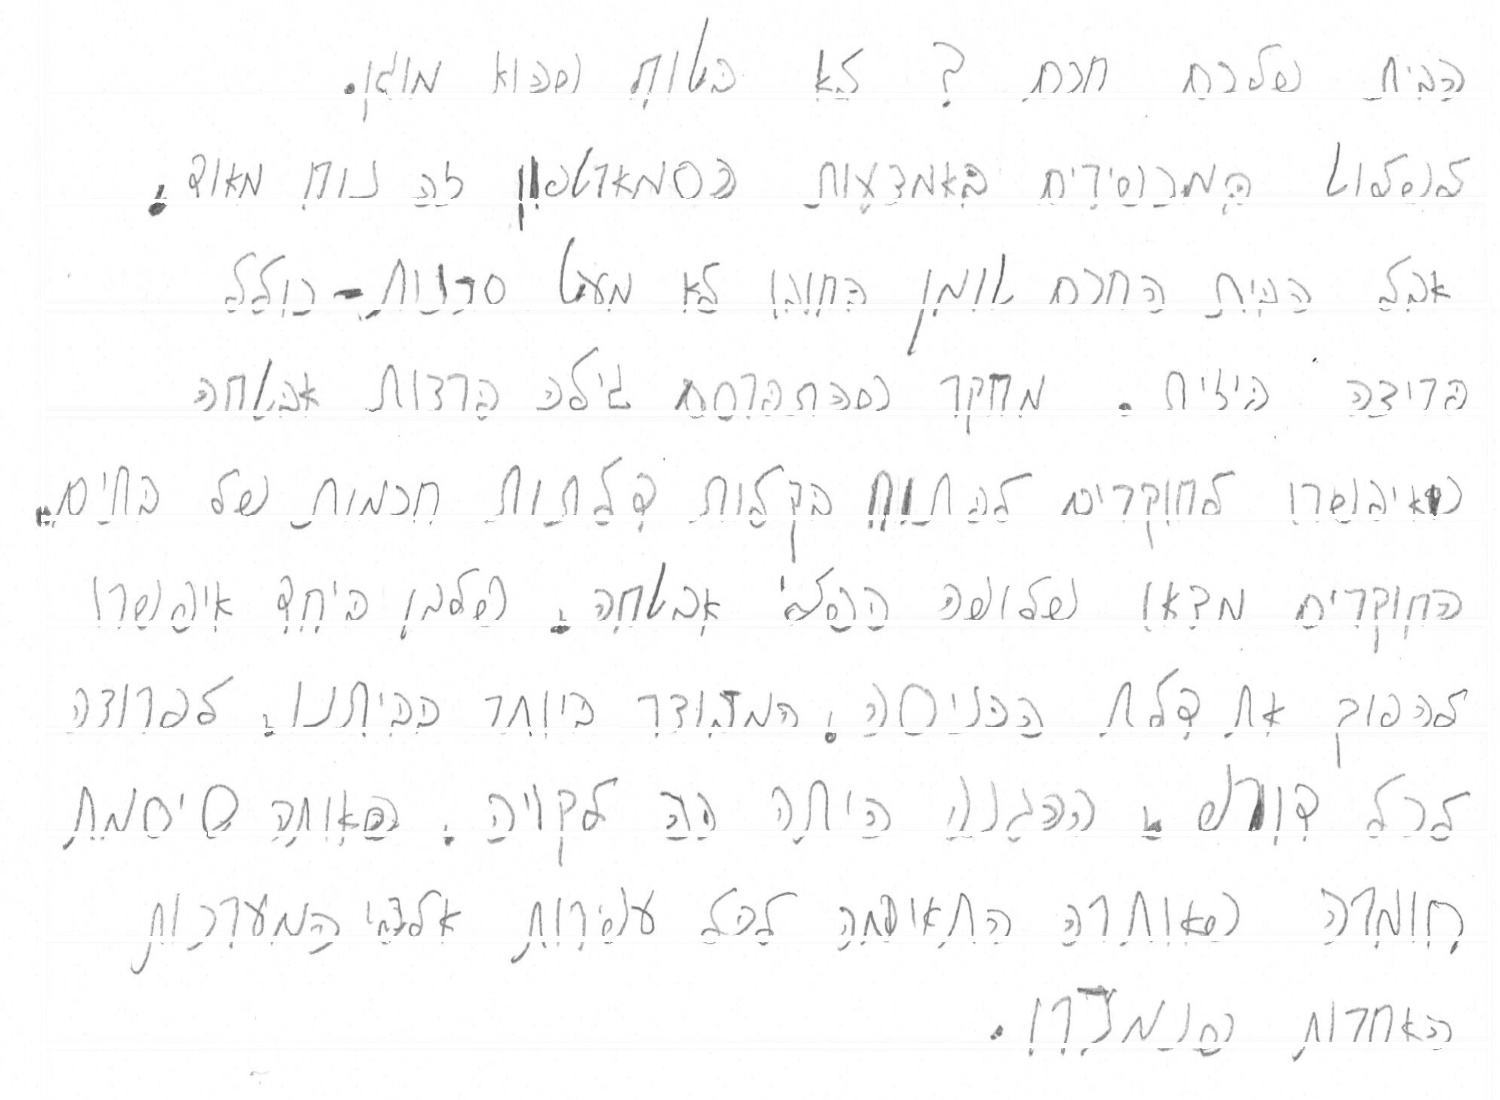 הבית שלכם חכם ? לא בטוח שהוא מוגן.
לשלוט המכשירים באמצעות הסמארטפון זה נוח מאוד.
אבל הבית החכם טומן בחובו לא מעט סכנות - כולל
פריצה ביתית. מחקר שהתפרסם גילה פרצות אבטחה
שאיפשרו לחוקרים לפתוח בקלות דלתות חכמות של בתים.
החוקרים מצאו שלושה כשלי אבטחה. שלכן ביחד איפשרו
להפוך את דלת הכניסה, המבודד ביותר בביתנו, לפרוצה
לכל דורש. ההגנה היתה כה לקויה, שאותה סיסמת
חומרה שאותרה התאימה לכל עשרות אלפי המערכות
האחרות שנמכרו.